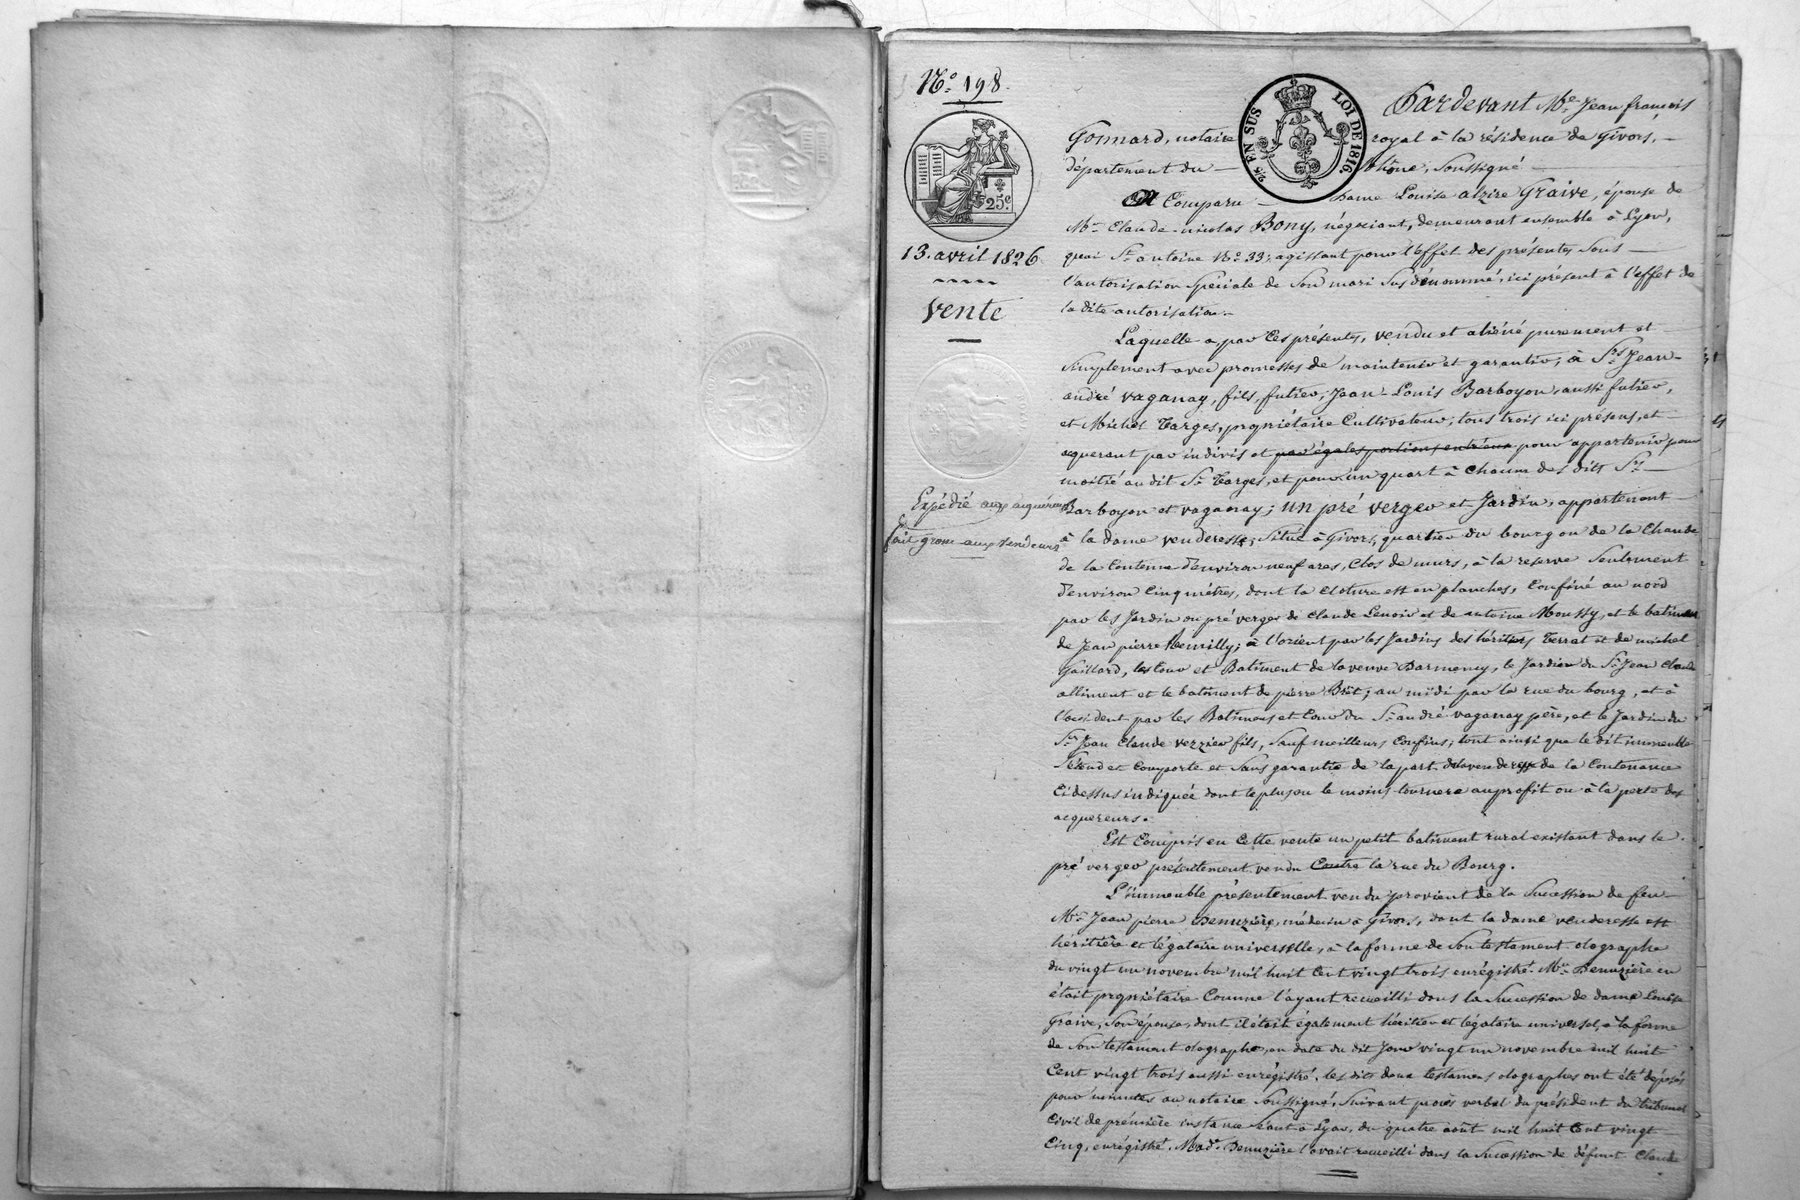 N.º 198.
25 c
13. avril 1826
vente
Expédié aux acquéreurs
fait grosse aux vendeurs
2/5 EN SUS LOI DE 1816.
Pardevant Me Jean françois
Gonnard, notaire royal à la résidence de Givors,
département du Rhône, Soussigné
Est Comparu Dame Louise alzire Graive, épouse de
Mr. Claude-nicolas Bony, négociant, demeurant ensemble à Lyon,
quai St. antoine No. 33; agissant pour l'effet des présentes Sous
l'autorisation Speciale de Son mari Susdénommé, ici présent à l'effet de
la dite autorisation.
Laquelle a, par Ces présentes, vendu et aliéné purement et
Simplement avec promesses de maintenir et garantir, à Srs. Jean-
andré vaganay, fils, futier, Jean-Louis Barboyon, aussi futier,
et Michel Targes, propriétaire Cultivateur, tous trois ici présens, et
acquerant par indivis et par égales portions entr'eux pour appartenir pour
moitié au dit Sr. Targes, et pour un quart à Chacun des dits Srs.
Barboyon et vaganay; un pré verger et Jardin, appartenant
à la dame venderesse, Situé à Givors, quartier du bourg ou de la Chaude
de la Contenue d'environ neuf ares, Clos de murs, à la reserve Seulement
d'environ Cinq mètres, dont la Cloture est en planches, Confiné au nord
par les Jardin ou pré verger de Claude Lenoir et de antoine Moussy, et le batiment
de Jean pierre Remilly; à l'orient par les Jardins des héritiers Terrat et de michel
Gaillard, les Cour et Batiment de la veuve Darmency, le Jardin du Sr. Jean Claude
alliment et le batiment de pierre Brêt; au midi par la rue du bourg, et à
l'occident par les Batimens et Cour du Sr. andré vaganay père, et le Jardin du
Sr. Jean Claude verzier fils, Sauf meilleurs Confins; tout ainsi que le dit immeuble
S'étend et Comporte et Sans garantie de la part de la venderesse de la Contenance
Ci dessus indiquée dont le plus ou le moins tournera au profit ou à la perte des
acquereurs.
Est Compris en Cette vente un petit batiment rural existant dans le
pré verger présentement vendu Contre la rue du Bourg.
L'immeuble présentement vendu provient de la Succession de feu
Mr. Jean pierre Benuzière, médecin à Givors, dont la dame venderesse est
héritière et légataire universelle, à la forme de Son testament olographe
du vingt un novembre mil huit Cent vingt trois enrégistré. Mr. Benuzière en
était propriétaire Comme l'ayant recueilli dans la Succession de dame Louise
Graive, Son épouse, dont il était également héritier et légataire universel, à la forme
de Son testament olographe, en date du dit Jour vingt un novembre mil huit
Cent vingt trois aussi enrégistré. les dits deux testamens olographes ont été déposés
pour minutes au notaire Soussigné, Suivant procès verbal du président du tribunal
Civil de première instance Séant à Lyon, du quatre août mil huit Cent vingt
Cinq, enrégistré. Made. Benuzière l'avait recueilli dans la Succession de défunt Claude